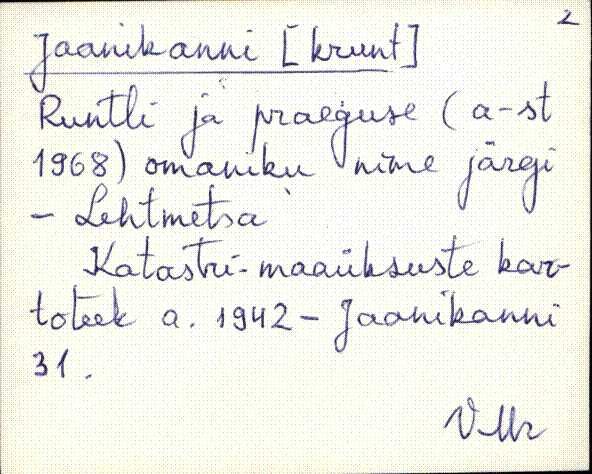 2
Jaanikanni [krunt]
Runtli ja praeguse (a-st
1968) omaniku nime järgi
- Lehtmetsa
Katastri-maaüksuste kar-
toteek a. 1942 - Jaanikanni
31.